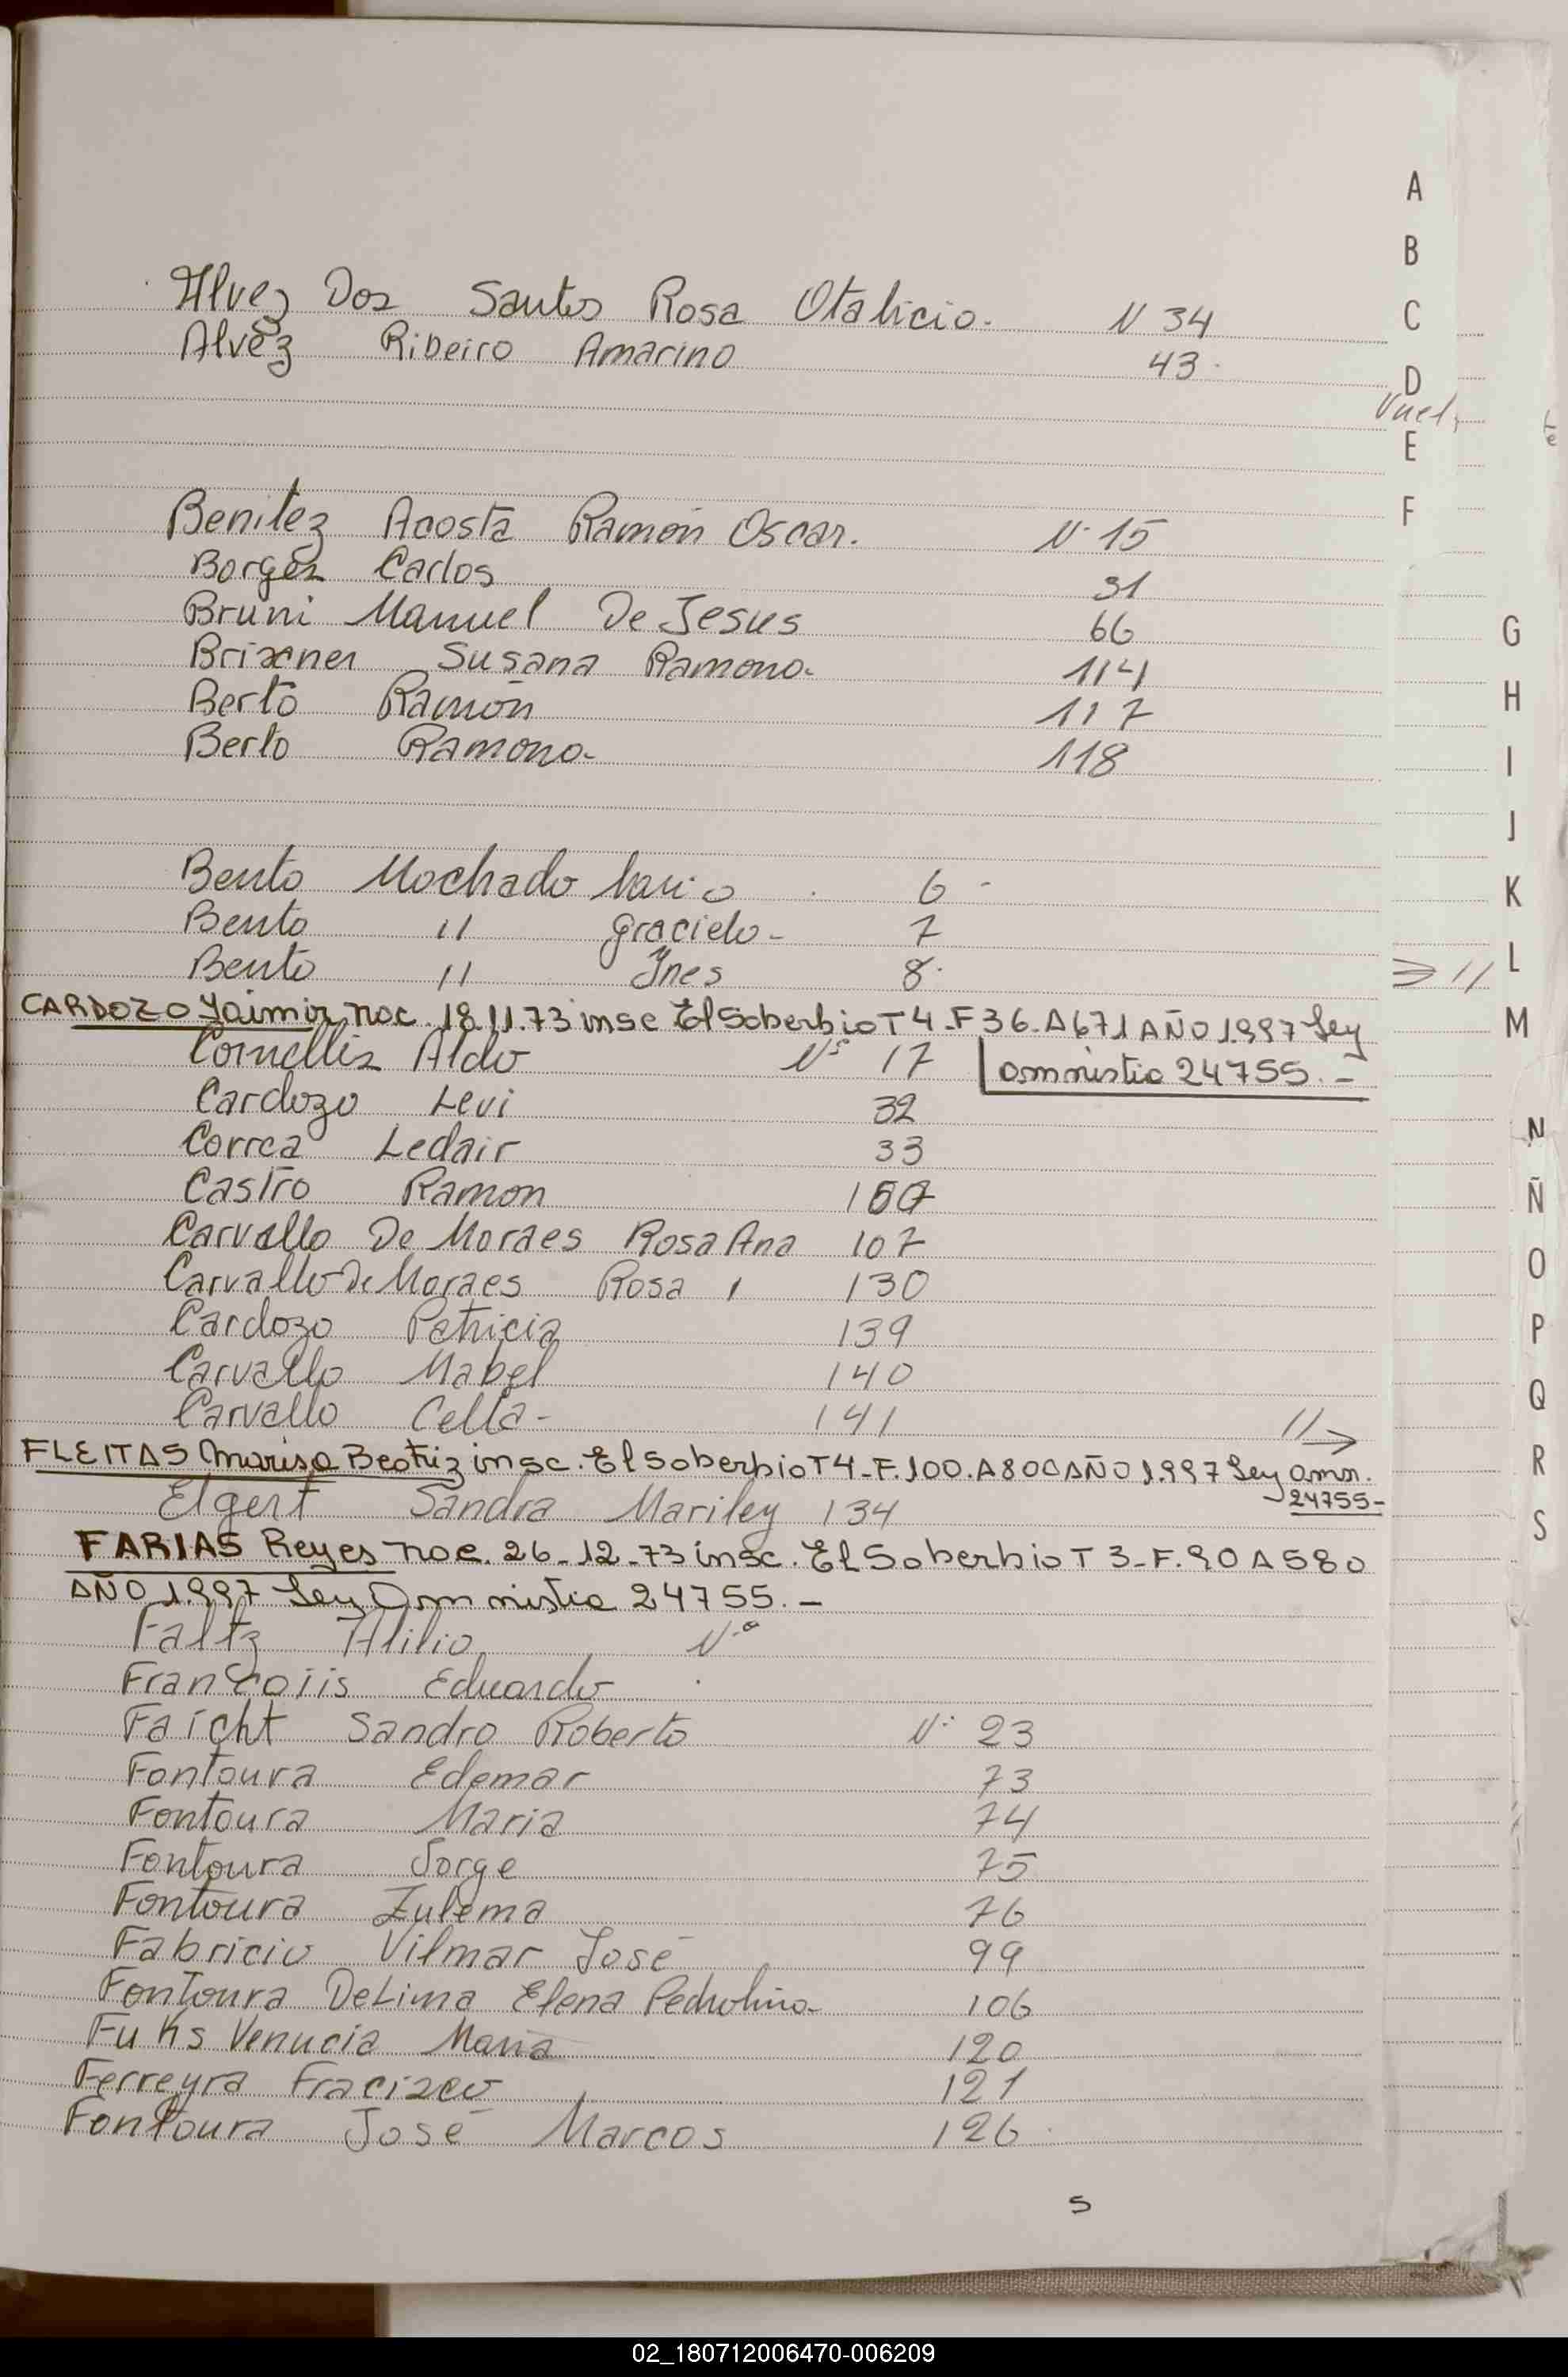 A
B
C
D
E
F
G
H
I
J
K
L
M
N
Ñ
O
P
Q
R
S
Alvez Dos Santos Rosa Otalicio. N 34
Alvez Ribeiro Amarino 43.
Vuel
Benitez Acosta Ramón Oscar. Nº 15
Borges Carlos 31
Bruni Manuel De Jesus 66
Brixner Susana Ramona. 114
Berto Ramón 117
Berto Ramona- 118
Bento Machado 6-
Bento 11 Graciela- 7
Bento 11 Ynes 8.
CARDOZO Yaimir nac. 18.11.73 insc El Soberbio T 4-F 36-A 671 AÑO 1.997 Ley
amnistia 24755.-
Cornelliz Aldo Nº 17
Cardozo Levi 32
Correa Ledair 33
Castro Ramon
Carvallo De Moraes Rosa Ana 107
Carvallo De Moraes Rosa 130
Cardozo Patricia 139
Carvallo Mabel 140
Carvallo Celia- 141
FLEITAS Marisa Beatriz insc. El Soberbio T 4-F.100.A 800 AÑO 1.997 Ley amn.
24755-
Elgert Sandra Mariley 134
FARIAS Reyes nac. 26-12-73 insc. El Soberbio T 3-F.90 A 580
AÑO 1.997 Ley Amnistia 24755.-
Faltz Atilio Nº
Françoiis Eduardo
Faicht Sandro Roberto Nº 23
Fontoura Edemar 73
Fontoura Maria 74
Fontoura Jorge 75
Fontoura Zulema 76
Fabricio Vilmar José 99
Fontoura DeLima Elena Pedrolina- 106
Fuks Venucia Maria 120
Ferreyra Fracizco 121
Fontoura José Marcos 126
5
02_180712006470-006209